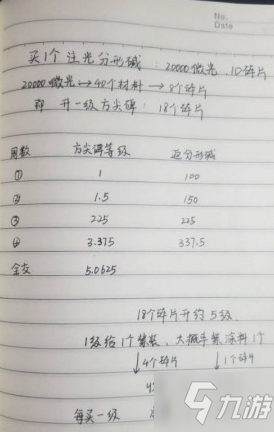 No.
Date
买1个注光分形碱：20000微光、10碎片
20000微光→40个材料→8个碎片
即 开一级方尖碑：18个碎片
周数 方尖碑等级 返分形碱
① 1 100
② 1.5 150
③ 2.25 225
④ 3.375 337.5
全支 5.0625
18个碎片开约5级
1级给1个紫装，大概率紫涂料1个
↓4个碎片 ↓1个碎片
每买一级
九游